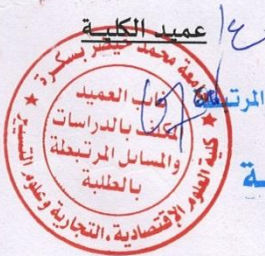 عميد الكلية
جامعة محمد خيضر بسكرة
نائب العميد
مكلف بالدراسات
والمسائل المرتبطة
بالطلبة
كلية العلوم الإقتصادية، التجارية وعلوم التسيير
المرتبطة